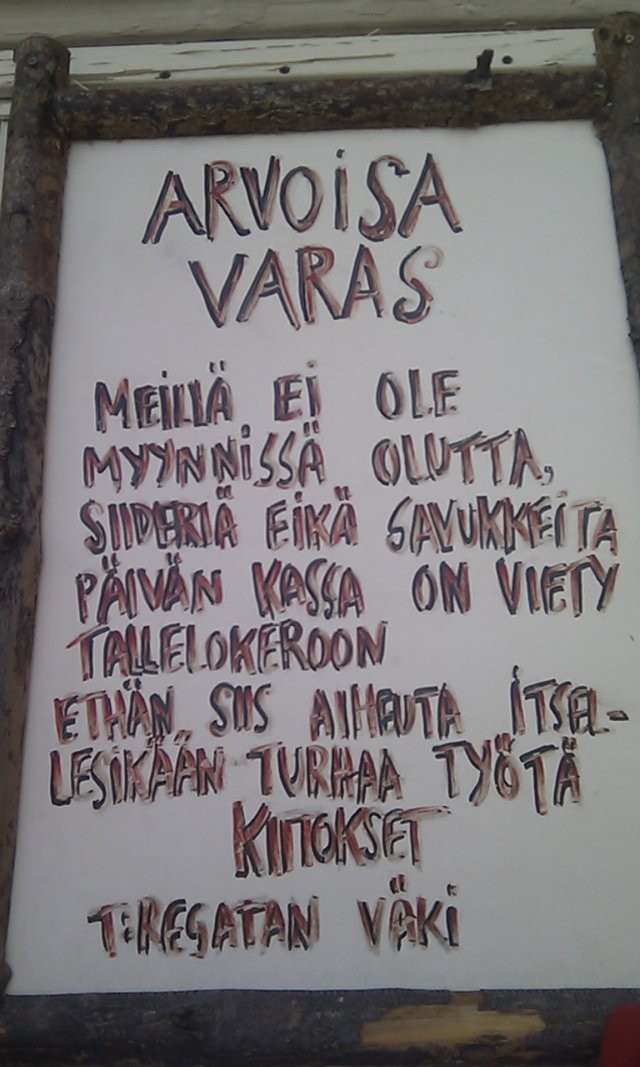 ARVOiSA
VARAS
MEiLLÄ Ei OLE
MYYNNiSSÄ OLUTTA,
SIIDERIÄ EIKÄ SAVUKKEiTA
PÄIVÄN KASSA ON VIETY
TALLELOKEROON
ETHÄN SIIS AIHEUTA iTSEL-
LESiKÄÄN TURHAA TYÖTÄ
KIITOKSET
T:REGATAN VÄKi